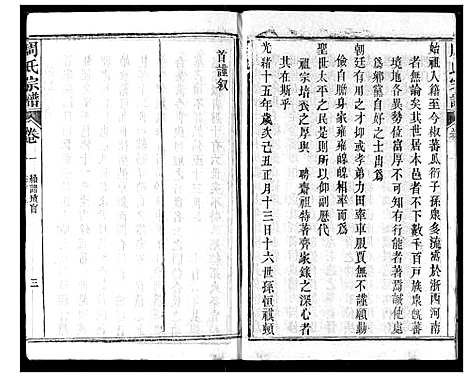 始祖入籍至今椒蕃瓜衍子孫眾多流寓於浙西河南
者無論矣其世居本邑者不下數千百戶族眾則
境地各異勢位富厚不可知有行能者著爲誠使處
爲鄉黨自好之士出爲
朝廷有用之才抑或孝弟力田車車服賈無不謹願勤
儉自贍身家雍雍皥皥相率而爲
聖世太平之民以仰副歷代
祖宗培養之厚與 聘齋祖特著齊家錄之深心者
其在斯乎
光緒十五年歲次己丑正月十三日十六世孫恒祺頓
首謹叙
周氏宗譜
卷一
三